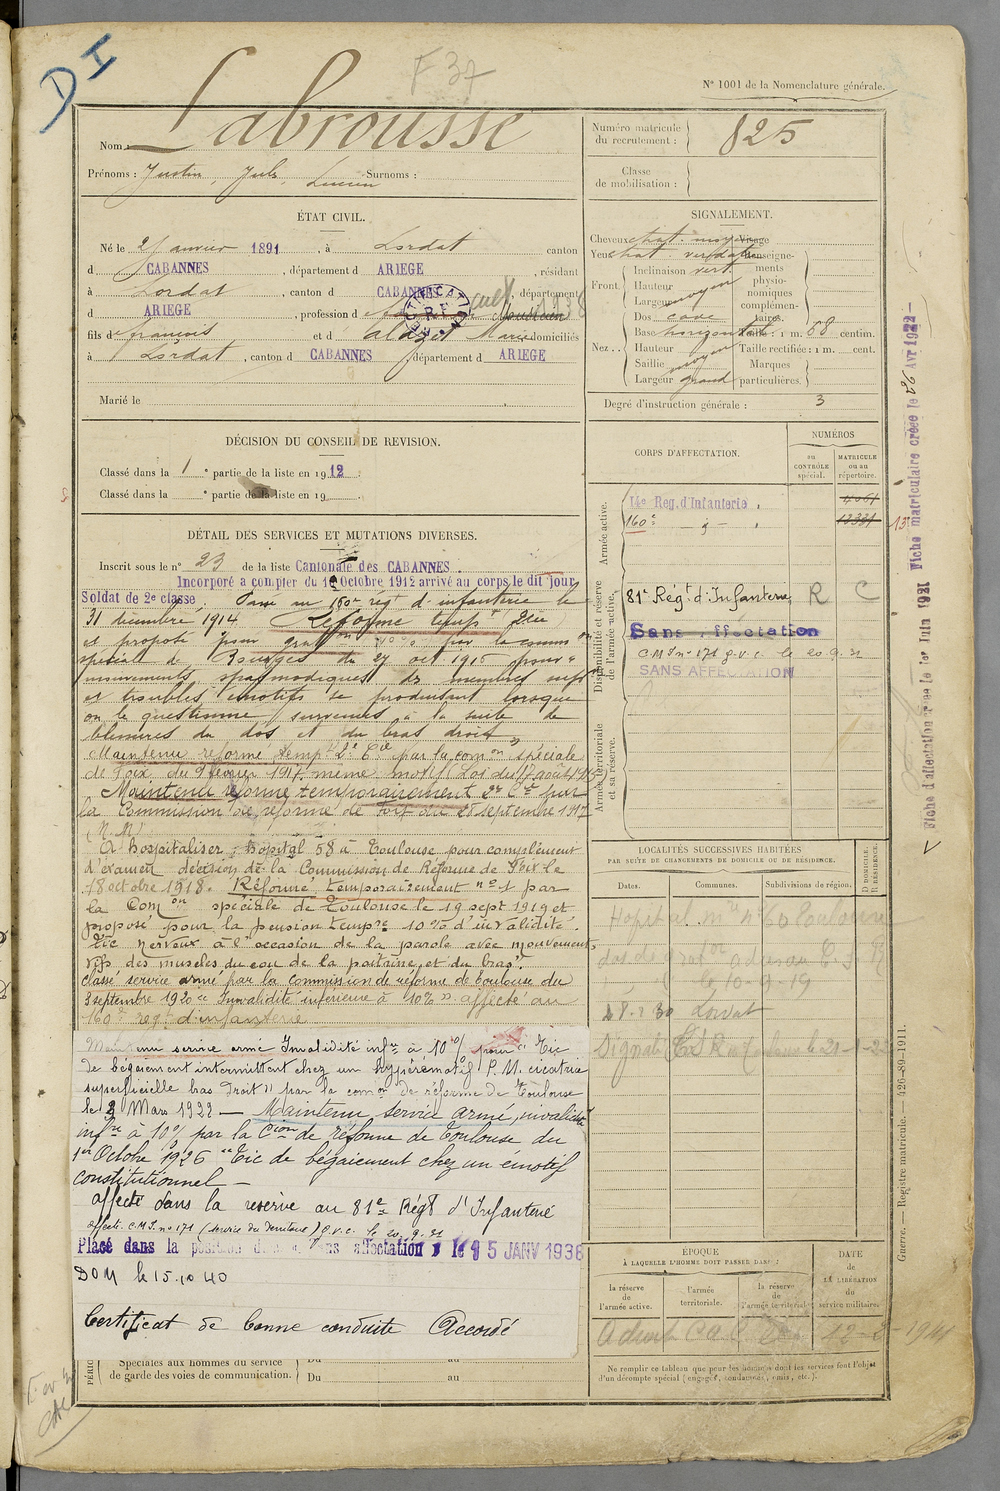 DI
F 37
N° 1001 de la Nomenclature générale.
Nom : Labrousse
Prénoms : Justin, Jules, Lucien Surnoms :
Numéro matricule du recrutement : 825
Classe de mobilisation :
ÉTAT CIVIL.
Né le 2 janvier 1891, à Lordat canton
d CABANNES, département d ARIEGE, résidant
à Lordat, canton d CABANNES, département
d ARIEGE, profession d
fils de françois et d Alazet Marie domiciliés
à Lordat, canton d CABANNES, département d ARIEGE
Marié le
SIGNALEMENT.
Cheveux chat. moyen Visage
Yeux chat. verdâtre Renseigne-
Inclinaison vert. ments
Front Hauteur physio-
Largeur moyen nomiques
complémen-
Dos cave taires.
Base horizontale Taille : 1 m. 68 centim.
Nez.. Hauteur Taille rectifiée : 1 m. cent.
Saillie moyen Marques
Largeur grand particulières.
Degré d'instruction générale : 3
DÉCISION DU CONSEIL DE REVISION.
Classé dans la 1e partie de la liste en 1912.
Classé dans la e partie de la liste en 19
DÉTAIL DES SERVICES ET MUTATIONS DIVERSES.
Inscrit sous le n° 23 de la liste Cantonale des CABANNES.
Incorporé a compter du 10 Octobre 1912 arrivé au corps le dit jour
Soldat de 2e classe, Passé au 160e régt d'infanterie le
31 décembre 1914. Réformé temps
et proposé pour par la comm on
spéciale de Bourges du 27 oct 1916 pour "
mouvements spasmodiques des membres supr
et troubles émotifs se produisant lorsque
on le questionne survenus à la suite de
blessures du dos et du bras droit"
Maintenu réformé temp. 2e Cie par la com on spéciale
de Foix du 9 février 1917 même motif (Loi du 17 août 1915
Maintenu réformé temporairement par
la Commission de réforme de Foix du 28 septembre 1917
(N. M)
A hospitaliser, hôpital 58 à Toulouse pour complément
d'examen décision de la Commission de Réforme de Foix le
18 octobre 1918. Réformé temporairement n° 1 par
la Com on spéciale de Toulouse le 19 sept 1919 et
proposé pour la pension temp re 10% d'invalidité.
Tic nerveux à l'occasion de la parole avec mouvements
vifs des muscles du cou de la poitrine et du bras".
Classé service armé par la commission de réforme de Toulouse du
3 septembre 1920 " Invalidité inférieure à 10% " affecté au
160e regt d'infanterie
Maintenu service armé Invalidité infre à 10% pour " Tic
de bégaiement intermittent chez un hyperémotif P.M. cicatrice
superficielle bras droit" par la com on de réforme de Toulouse
le 2 Mars 1922 — Maintenu service armé, invalidité
infre à 10% par la Cion de réforme de Toulouse du
1er Octobre 1926 "Tic de bégaiement chez un émotif
constitutionnel —
affecté dans la reserve au 81e Régt d'Infanterie
affecté C.M.I. n° 171 (service du Territoire) p.v.c. le 20.9.31
Placé dans la position sans affectation le 15 JANV 1938
DOM le 15.10 40
Certificat de bonne conduite Accordé
Spéciales aux hommes du service Du au
de garde des voies de communication. Du au
CORPS D'AFFECTATION.
NUMÉROS
au CONTRÔLE spécial.
MATRICULE ou au répertoire.
Armée active.
14e Reg. d'Infanterie
160e — d° —
Disponibilité et réserve de l'armée active.
81e Régt d'Infanterie R C
Sans affectation
C.M.I n° 171 p.v.c. le 20.9.31
SANS AFFECTATION
Armée territoriale et sa réserve.
Fiche matriculaire créée le 22 AVR 1922 —
Fiche d'affectation créée le 1er Juin 1921
LOCALITÉS SUCCESSIVES HABITÉES
PAR SUITE DE CHANGEMENTS DE DOMICILE OU DE RÉSIDENCE.
Dates. Communes. Subdivisions de région. D DOMICILE. R RÉSIDENCE.
Hopital m n° 60 Toulouse
le 10-9-19
Lordat
ÉPOQUE
À LAQUELLE L'HOMME DOIT PASSER DANS :
la réserve de l'armée active.
l'armée territoriale.
la réserve de l'armée territoriale.
DATE de LA LIBÉRATION du service militaire.
Ne remplir ce tableau que pour les hommes dont les services font l'objet
d'un décompte spécial (engagés, condamnés, omis, etc.).
Guerre. — Registre matricule. — 426-89-1911.